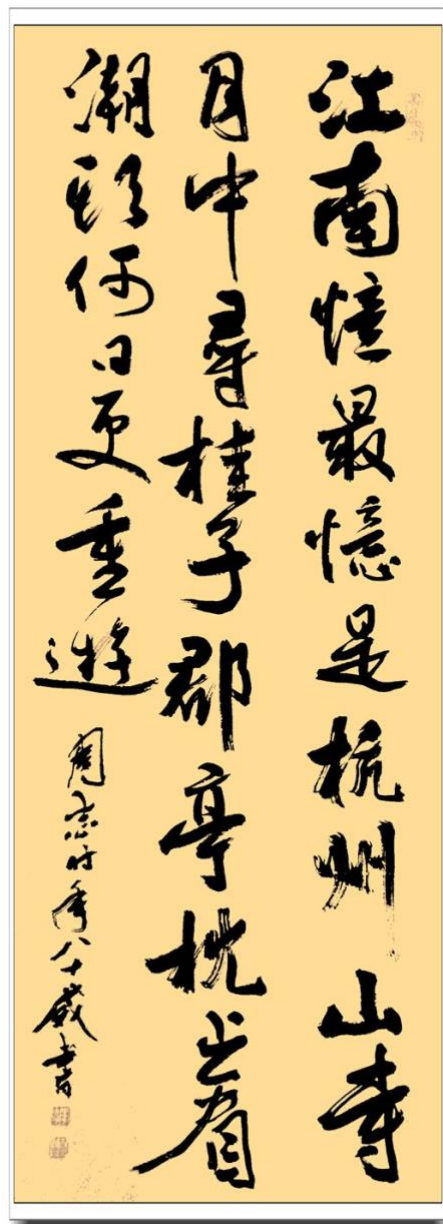 江南憶最憶是杭州山寺
月中尋桂子郡亭枕上看
潮頭何日更重遊
周志时年八十歲書